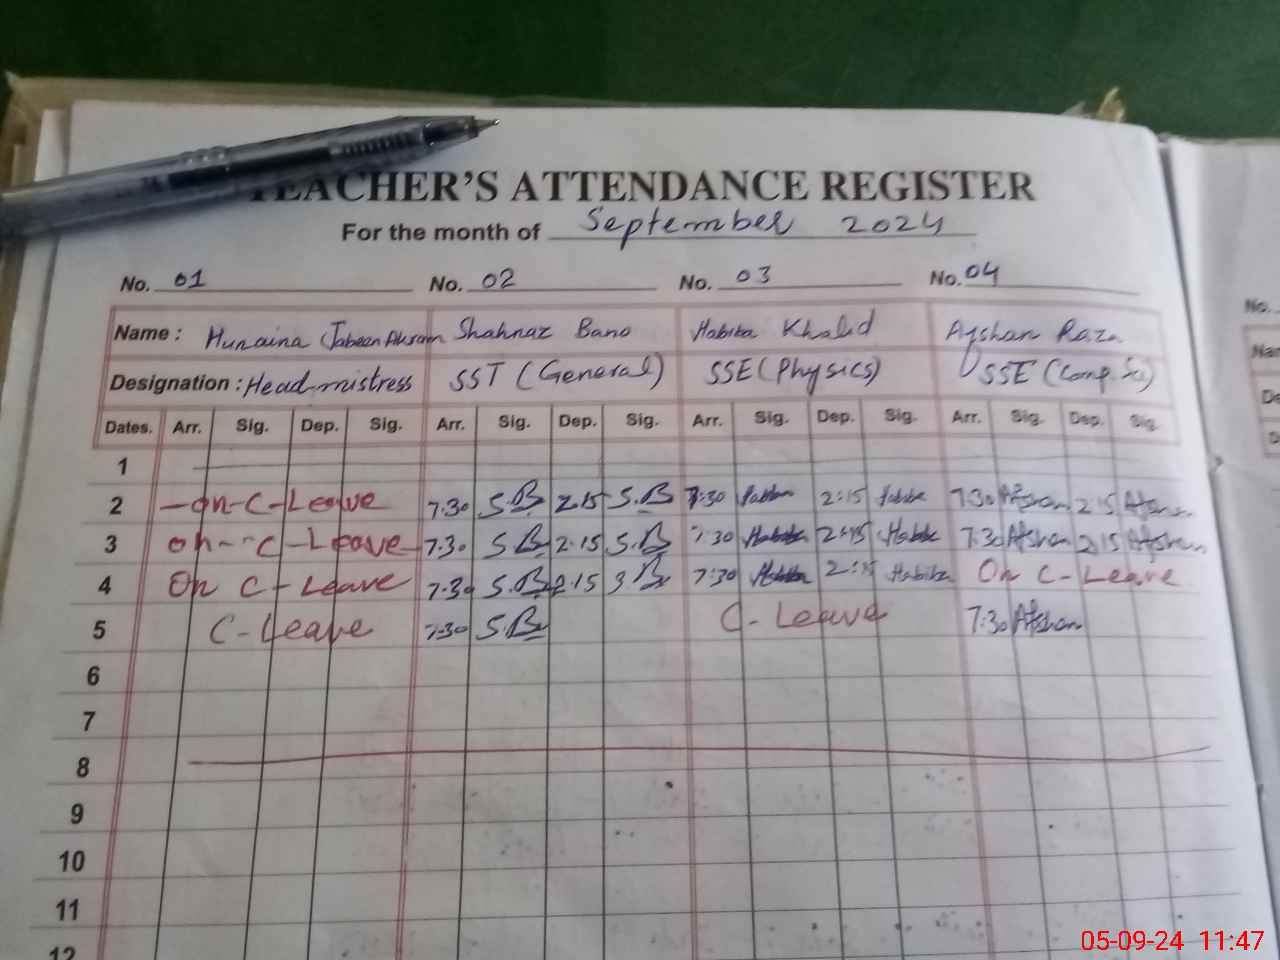 TEACHER'S ATTENDANCE REGISTER
For the month of September 2024
No. 01 No. 02 No. 03 No. 04
Name: Hunaina Jabeen Akram Shahnaz Bano Habiba Khalid Afshan Raza
Designation: Head mistress SST (General) SSE (Physics) SSE (Comp. Sc)
Dates. Arr. Sig. Dep. Sig. Arr. Sig. Dep. Sig. Arr. Sig. Dep. Sig. Arr. Sig. Dep. Sig.
1
2 -on-C-Leave 7.30 S.B 2.15 S.B 7:30 Habiba 2:15 Habiba 7.30 Afshan 2:15 Afshan
3 on--C-Leave 7.30 S.B 2.15 S.B 7:30 Habiba 2:15 Habiba 7:30 Afshan 2:15 Afshan
4 On C-Leave 7:30 S.B 2.15 S.B 7:30 Habiba 2:15 Habiba On C-Leave
5 C-Leave 7:30 S.B C-Leave 7:30 Afshan
6
7
8
9
10
11
12
No.
05-09-24 11:47